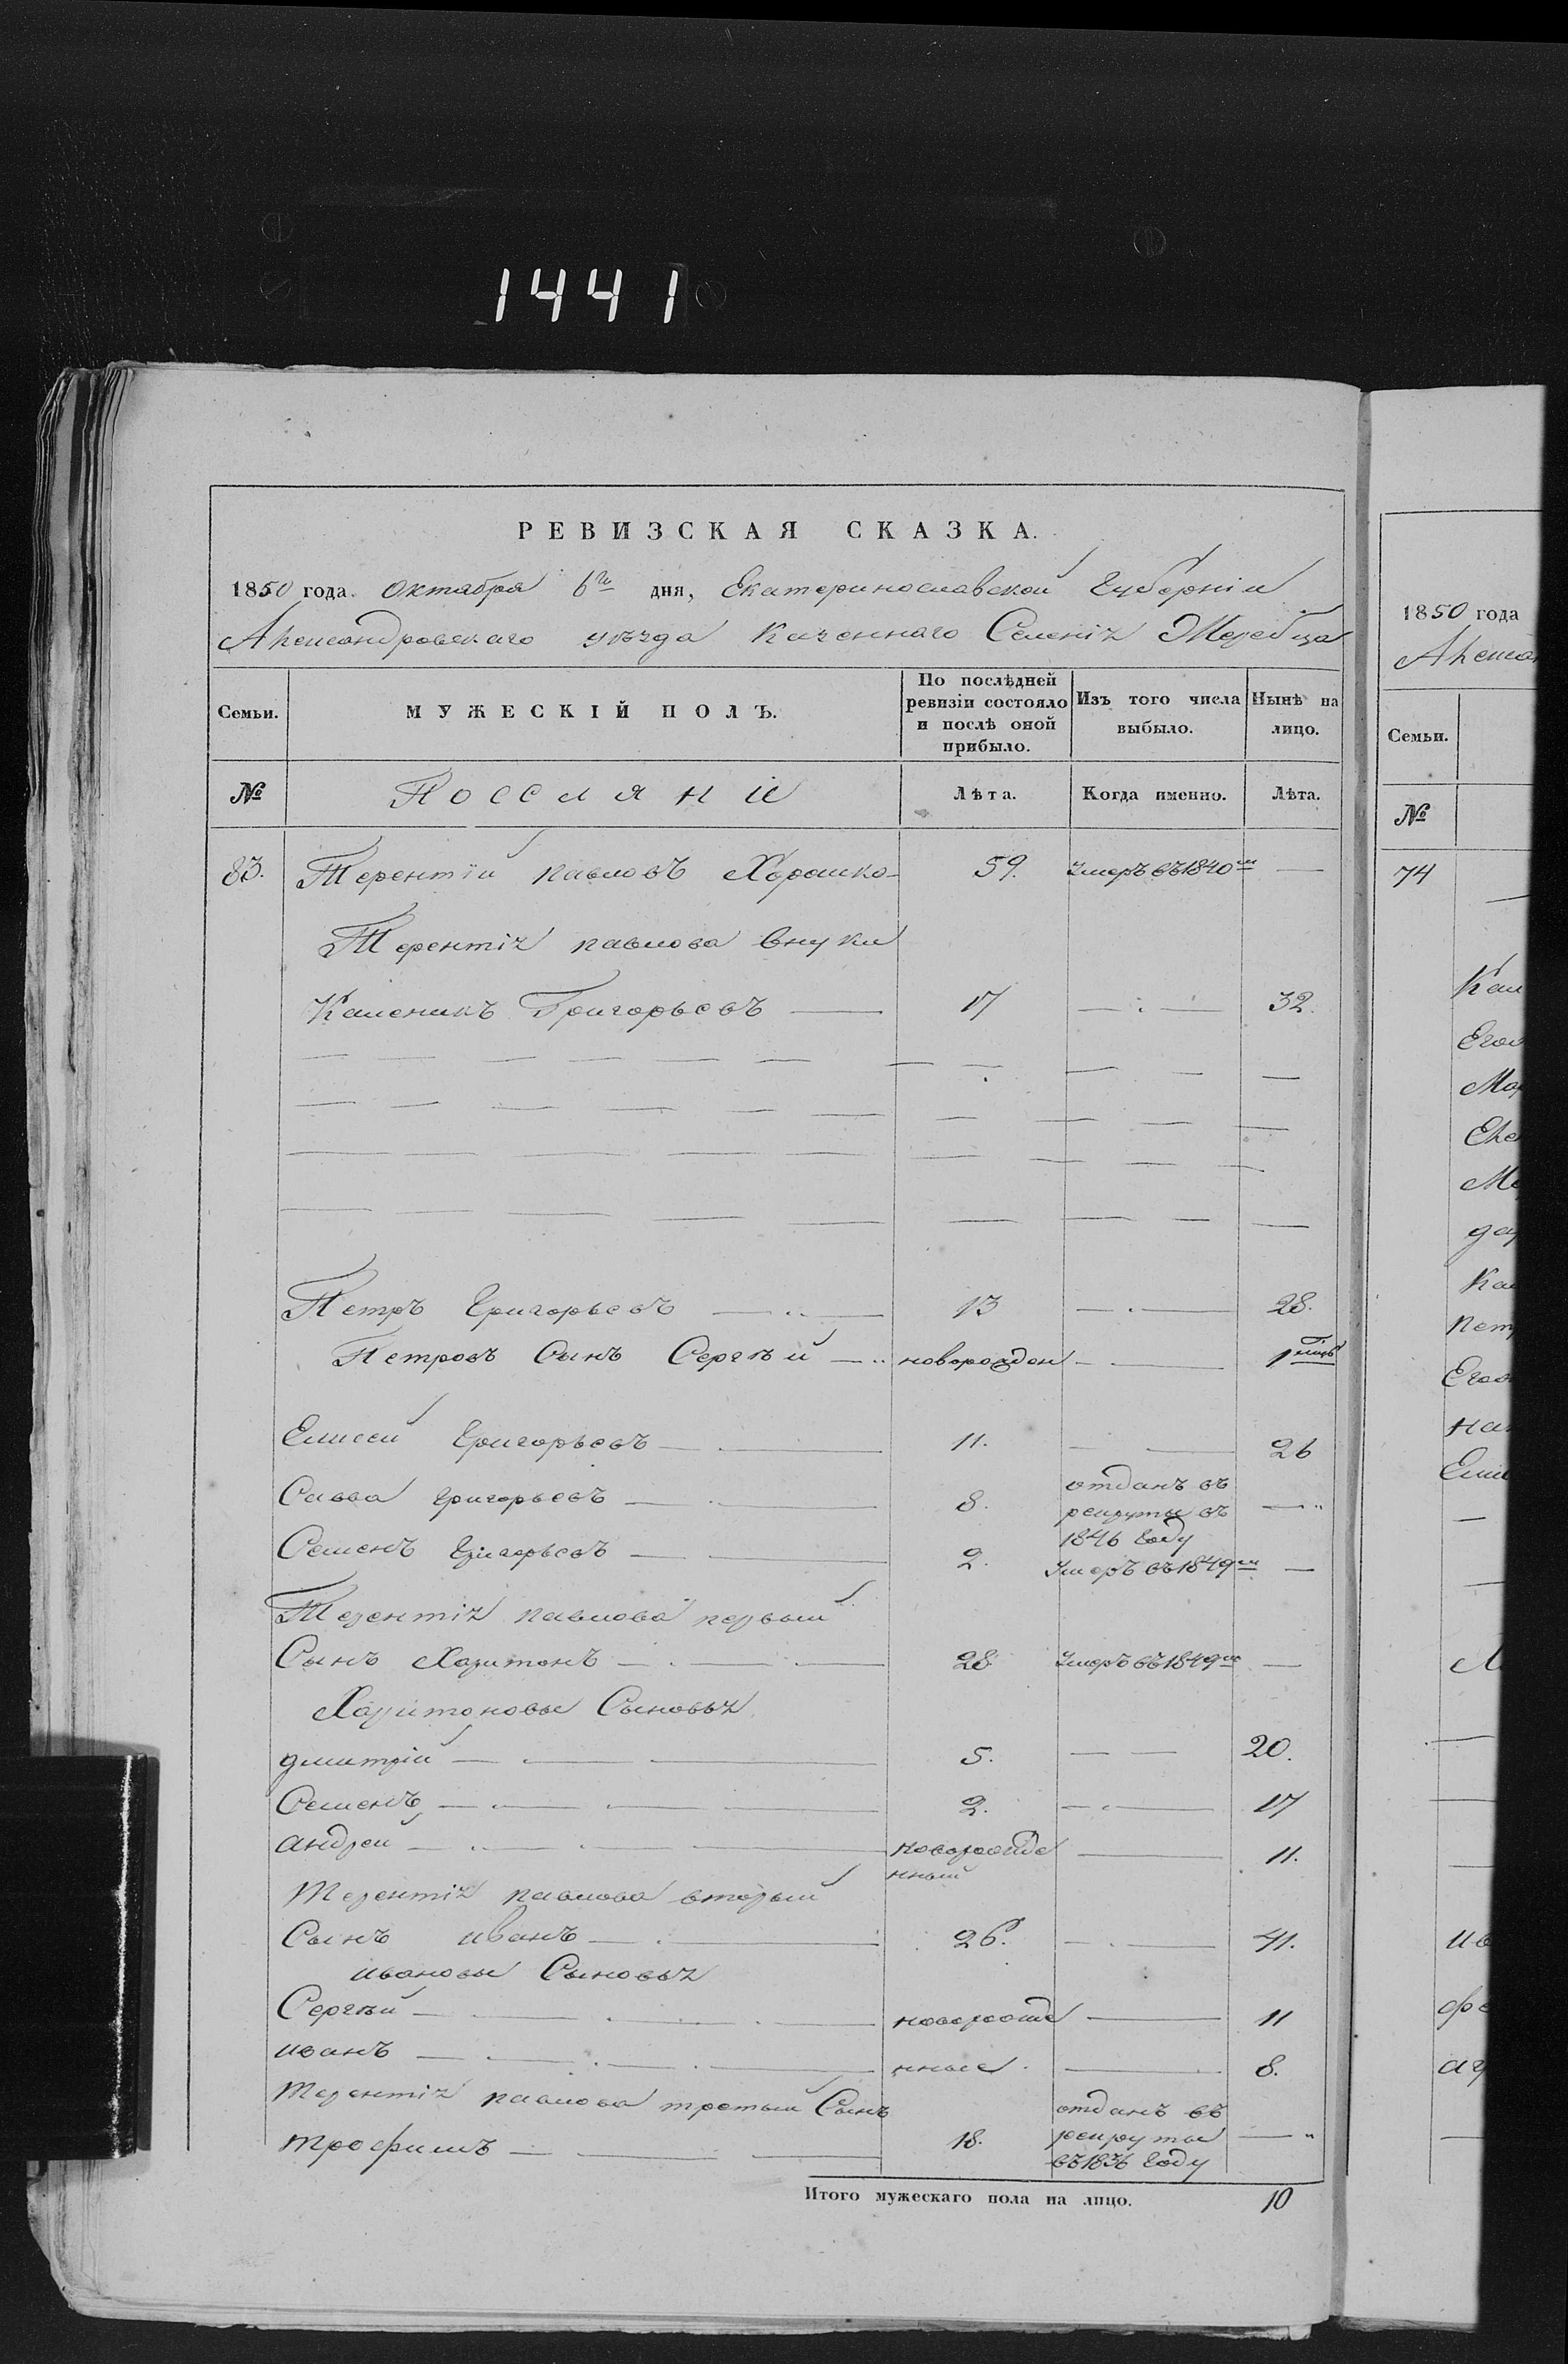 1441
РЕВИЗСКАЯ СКАЗКА.
1850 года. Октября 6го дня, Екатеринославской Губерніи
Александровскаго уѣзда Казеннаго Селенія Жеребца
Семьи. МУЖЕСКІЙ ПОЛЪ. По послѣдней ревизіи состояло и послѣ оной прибыло. Изъ того числа выбыло. Нынѣ на лицо.
№ Поселяне Лѣта. Когда именно. Лѣта.
83. Терентій павловъ Хорошко 59. Умеръ въ 1840м —
Терентія павлова внуки
Каленикъ Григорьевъ — 17 — 32.
Петръ Григорьевъ — 13 — 28.
Петровъ Сынъ Сергѣй — новорожден — 1 міцъ
Елисей Григорьевъ — 11. — 26
Савва григорьевъ — 8. отданъ въ рекруты въ 1846 Году —
Семенъ Григорьевъ — 2. Умеръ въ 1849м —
Терентія павлова первый
Сынъ Харитонъ — 28. Умеръ въ 1849м —
Харитоновы Сыновья
дмитрій — 5. — 20.
Семенъ — 2. — 17
андрей — новорожде нный — 11.
Терентія павлова вторый
Сынъ иванъ — 26. — 41.
ивановы Сыновья
Сергѣй — новорожде — 11
иванъ — нные. — 8.
Терентія павлова третый Сынъ
трофимъ — 18. отданъ въ рекруты въ 1836 Году —
Итого мужескаго пола на лицо. 10
1850 года
Семьи.
№
74